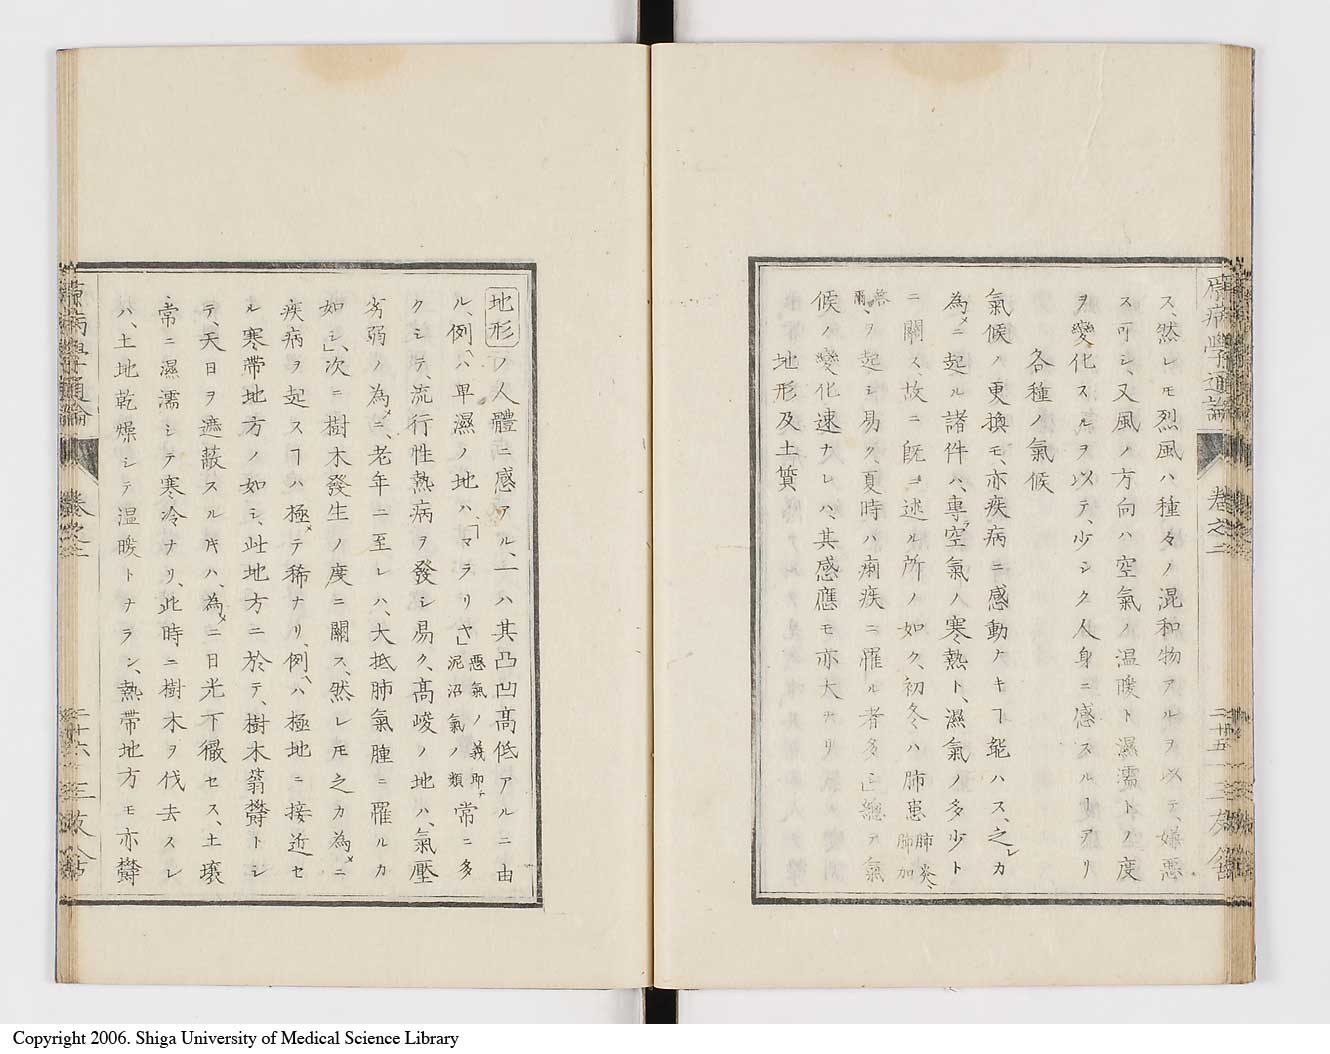 原病學通論
卷之二
二十五
ス、然レモ烈風ハ種々ノ混和物アルヲ以テ、嫌惡
ス可シ、又風ノ方向ハ空氣ノ温暖ト濕濡トノ度
ヲ變化スルヲ以テ、少シク人身ニ感スルヿアリ
各種ノ氣候
氣候ノ更換モ、亦疾病ニ感動ナキヿ能ハス、之レカ
為メニ起ル諸件ハ、專ラ空氣ノ寒熱ト、濕氣ノ多少ト
ニ關ス、故ニ既ニ述ル所ノ如ク、初冬ハ肺患肺炎、肺加
荅爾ヲ起シ易ク、夏時ハ痢疾ニ罹ル者多シ、總テ氣
候ノ變化速ナレハ、其感應モ亦大ナリ
地形及土質
地形ノ人體ニ感アル、一ハ其凸凹髙低アルニ由
ル、例ヘハ卑濕ノ地ハ、「マラリヤ」惡氣ノ義即チ泥沼氣ノ類常ニ多
クシテ、流行性熱病ヲ發シ易ク、髙峻ノ地ハ、氣壓
劣弱ノ為メニ、老年ニ至レハ、大抵肺氣腫ニ罹ルカ
如シ、次ニ樹木發生ノ度ニ關ス、然レモ之カ為メニ
疾病ヲ起スヿハ極メテ稀ナリ、例ヘハ極地ニ接近セ
ル寒帶地方ノ如シ、此地方ニ於テ、樹木蓊欝トシ
テ、天日ヲ遮蔽スル片ハ、為メニ日光下徹セス、土壤
常ニ濕濡シテ寒冷ナリ、此時ニ樹木ヲ伐去スレ
ハ、土地乾燥シテ温暖トナラン、熱帶地方モ亦欝
原病學通論
卷之二
二十六
Copyright 2006. Shiga University of Medical Science Library